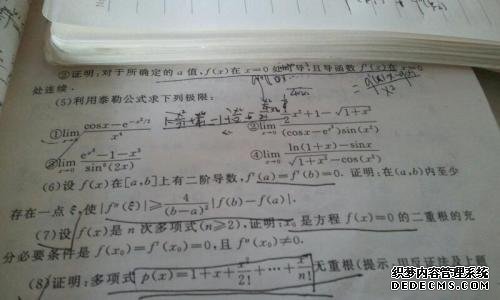 ②证明:对于所确定的a值,f(x)在x=0处可导,且导函数f'(x)在x=0
处连续.
(5)利用泰勒公式求下列极限:
①lim x→0 (cosx-e^(-x²/2))/x⁴
②lim x→0 x²+1-√(1+x²) / (cosx-e^(x²))sin(x²)
③lim x→0 (e^(x²)-1-x²)/sin⁴(2x)
④lim x→0 (ln(1+x)-sinx)/(√(1+x²)-cos(x²))
(6)设f(x)在[a,b]上有二阶导数,f'(a)=f'(b)=0.证明:在(a,b)内至少
存在一点ξ,使|f''(ξ)|≥4/(b-a)²|f(b)-f(a)|.
(7)设f(x)是n次多项式(n≥2),证明:x₀是方程f(x)=0的二重根的充
分必要条件是f(x₀)=f'(x₀)=0,且f''(x₀)≠0.
(8)证明:多项式p(x)=1+x+x²/2!+…+xⁿ/n!无重根(提示:用反证法及上题
本内容来源于网络
WWW.KSTZJ.COM